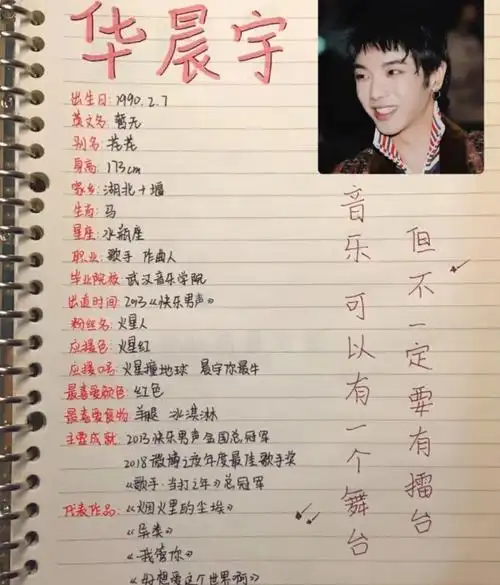 华晨宇
出生日: 1990.2.7
英文名: 暂无
别名: 花花
身高: 173cm
家乡: 湖北十堰
生肖: 马
星座: 水瓶座
职业: 歌手 作曲人
毕业院校: 武汉音乐学院
出道时间: 2013《快乐男声》
粉丝名: 火星人
应援色: 火星红
应援口号: 火星撞地球 晨宇你最牛
最喜爱颜色: 红色
最喜爱食物: 羊腿 冰淇淋
主要成就: 2013快乐男声全国总冠军
2018微博之夜年度最佳歌手奖
《歌手·当打之年》总冠军
代表作品: 《烟火里的尘埃》
《异类》
《我管你》
《好想爱这个世界啊》
音乐可以有一个舞台
但不一定要有擂台